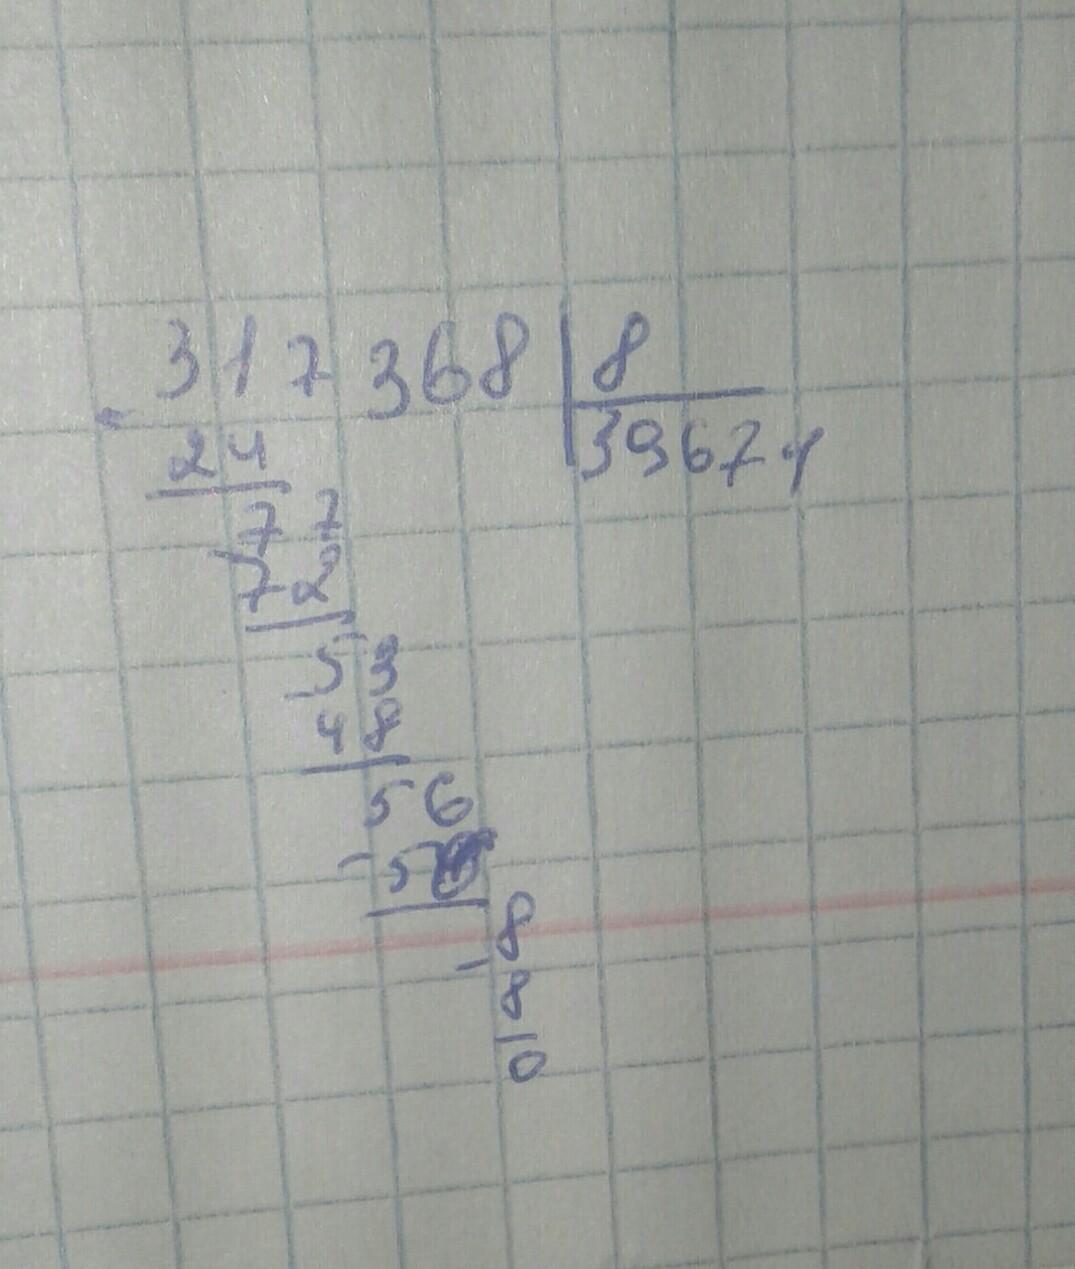 317 368 | 8
39671
24
77
72
53
48
56
- 56
8
- 8
0